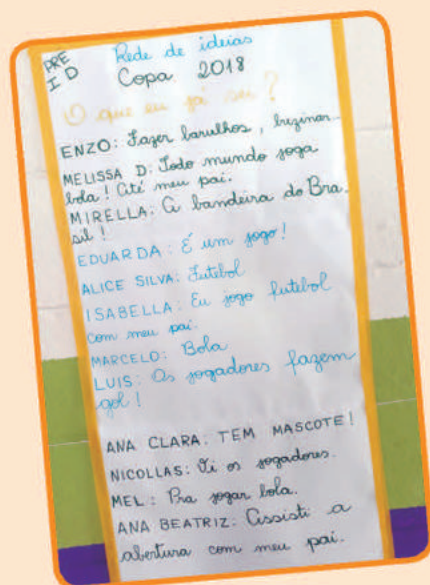 PRÉ
I D
Rede de ideias
Copa 2018
O que eu já sei?
ENZO: Fazer barulhos, buzinar.
MELISSA D: Todo mundo joga
bola! Até meu pai.
MIRELLA: A bandeira do Bra-
sil!
EDUARDA: É um jogo!
ALICE SILVA: Futebol
ISABELLA: Eu jogo futebol
com meu pai.
MARCELO: Bola
LUIS: Os jogadores fazem
gol!
ANA CLARA: TEM MASCOTE!
NICOLLAS: Vi os jogadores.
MEL: Pra jogar bola.
ANA BEATRIZ: Assisti a
abertura com meu pai.